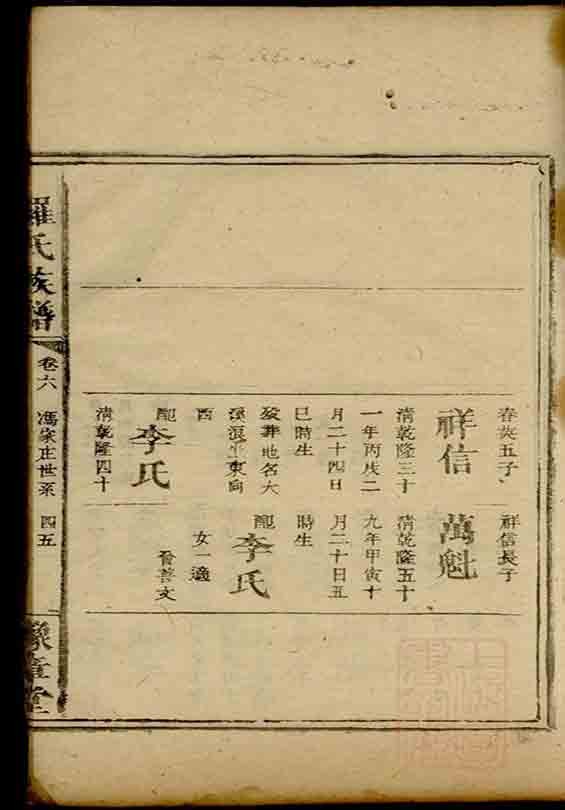 春英五子
祥信
清乾隆三十
一年丙戌二
月二十四日
巳時生
歿葬地名大
溪浪坐東向
西
配李氏
清乾隆四十
祥信長子
萬魁
清乾隆五十
九年甲寅十
月二十日五
時生
配李氏
女一適
晉善文
羅氏族譜
卷六 馮家庄世系 四五
豫章堂